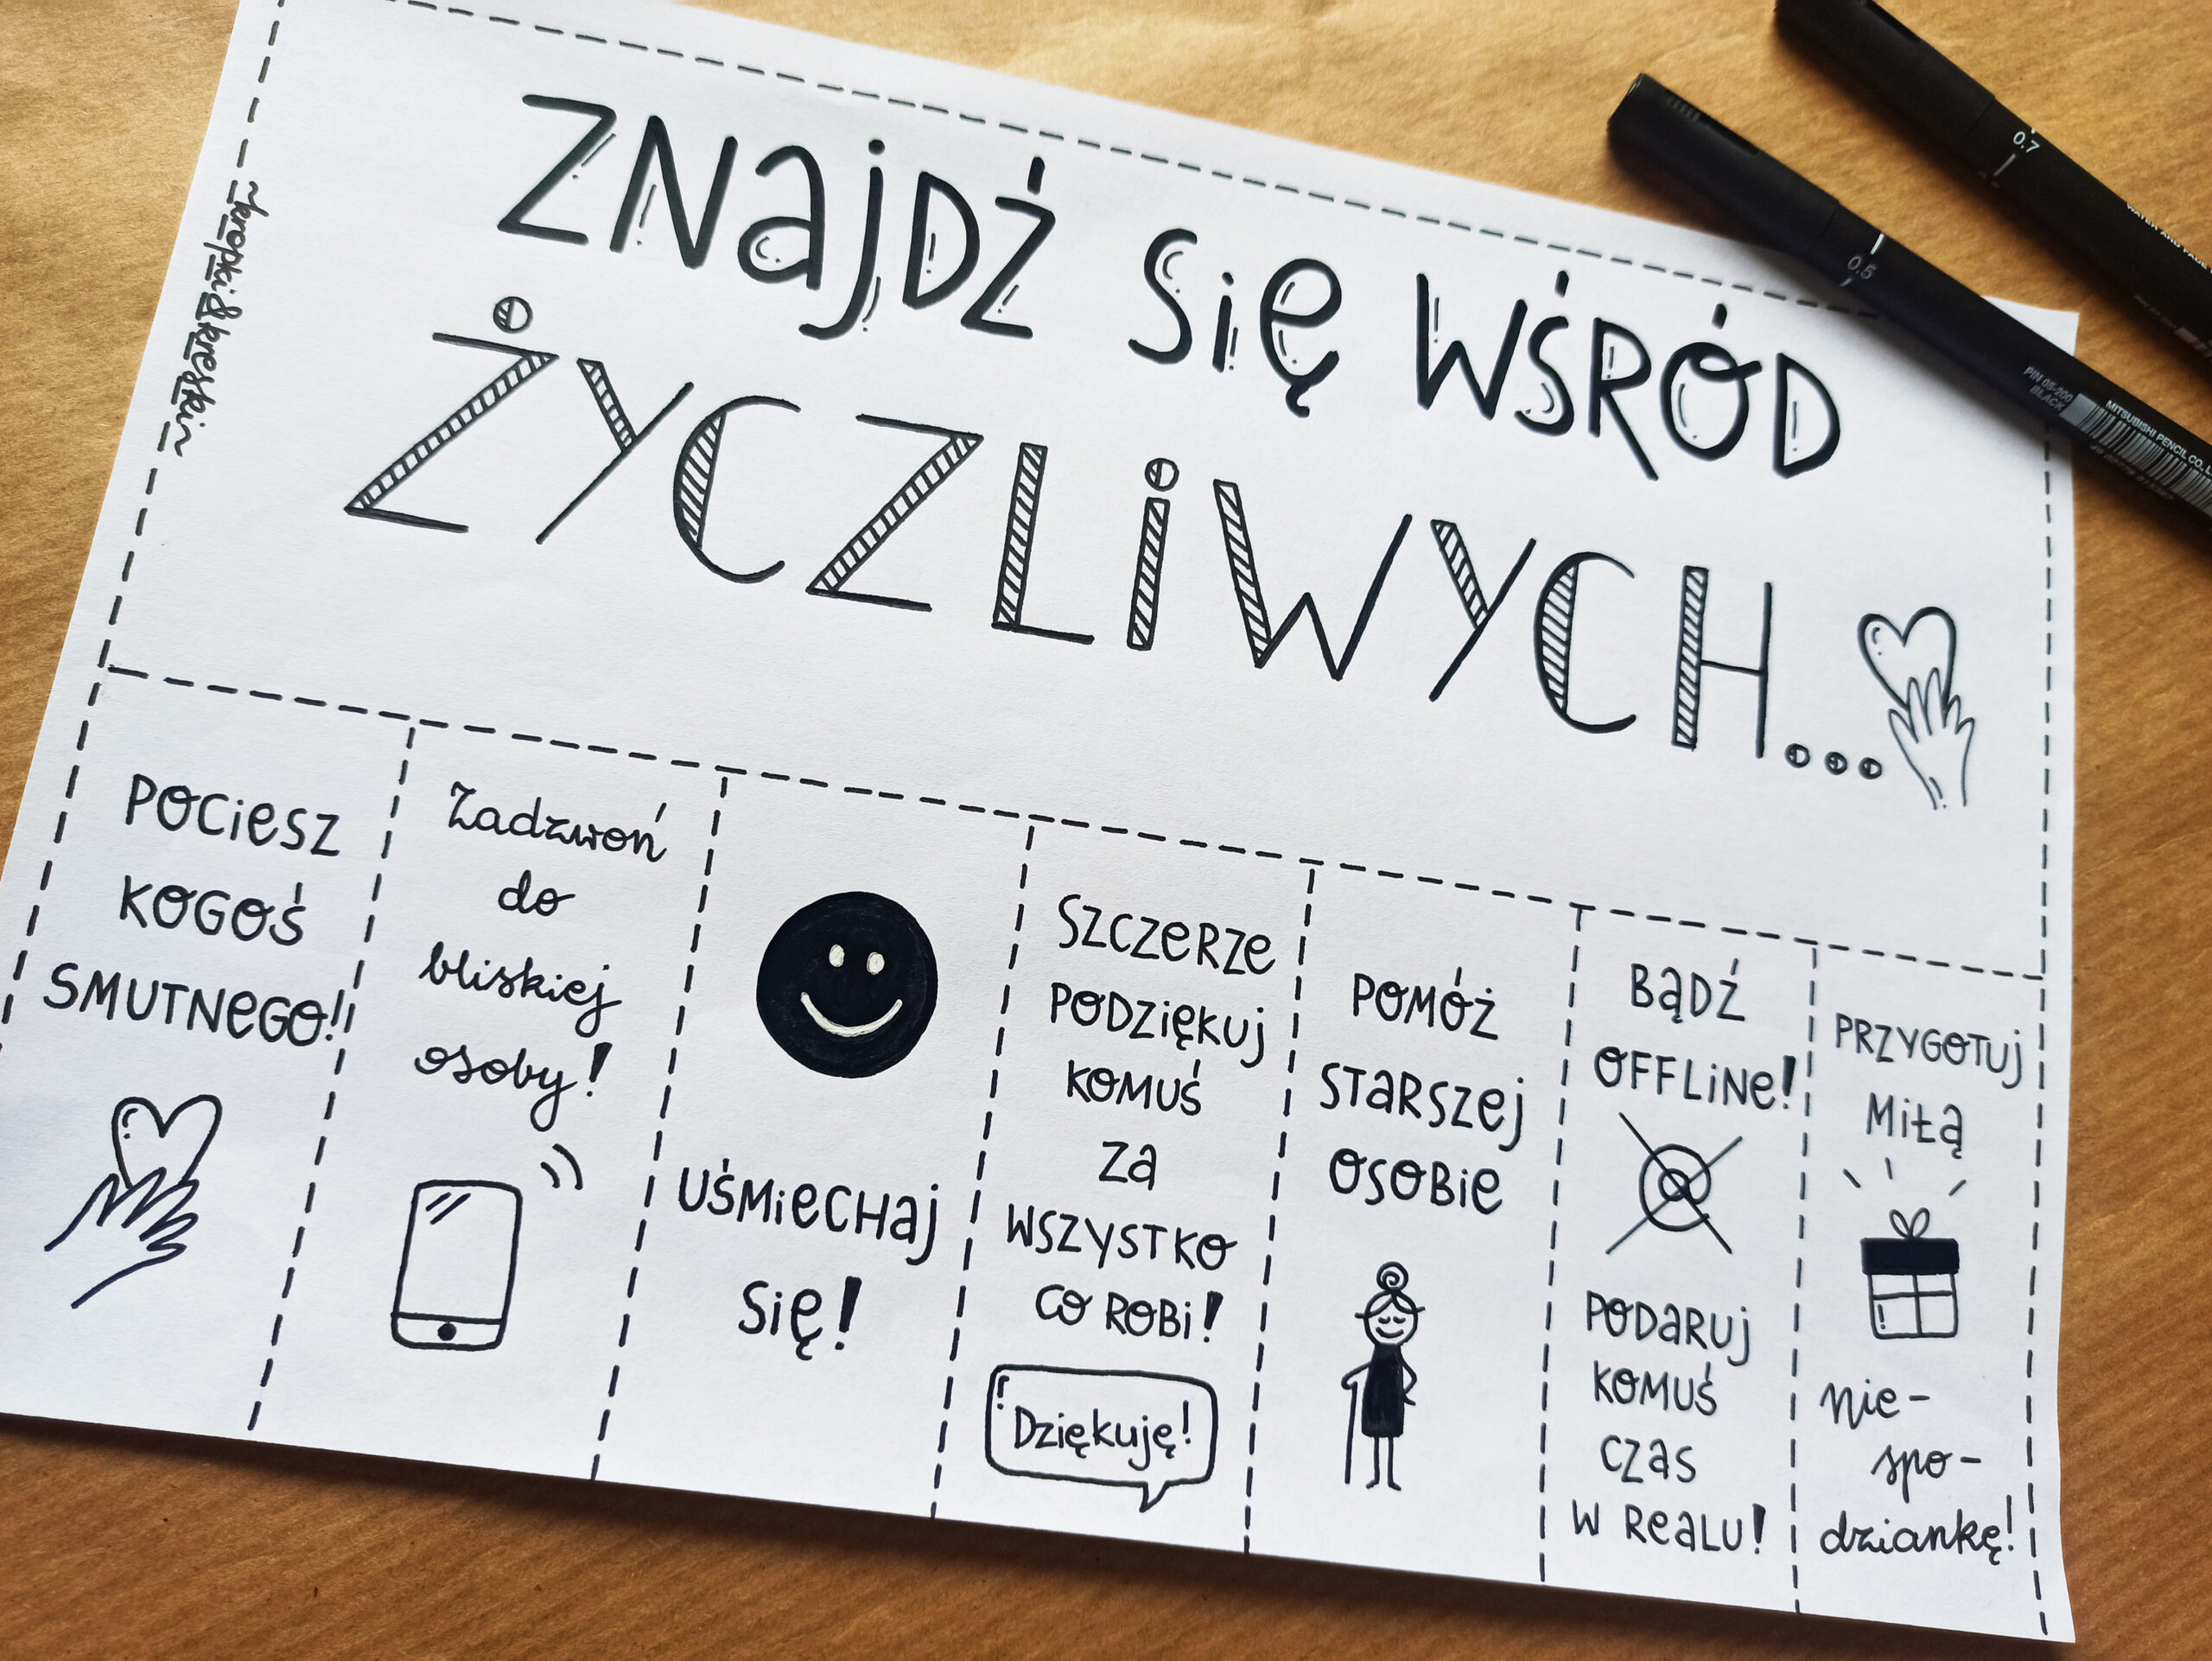 ZNAJDŹ SIĘ WŚRÓD
ŻYCZLIWYCH...
~kropki&kreski~
POCIESZ
KOGOŚ
SMUTNEGO!
Zadzwoń
do
bliskiej
osoby!
UŚMIECHAJ
SIĘ!
SZCZERZE
PODZIĘKUJ
KOMUŚ
ZA
WSZYSTKO
CO ROBI!
Dziękuję!
POMÓŻ
STARSZEJ
OSOBIE
BĄDŹ
OFFLINE!
PODARUJ
KOMUŚ
CZAS
W REALU!
PRZYGOTUJ
MIŁĄ
nie-
spo-
dziankę!
0.5
PIN 05-200
BLACK
MITSUBISHI PENCIL CO. L
0.7